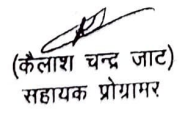 (कैलाश चन्द्र जाट)
सहायक प्रोग्रामर